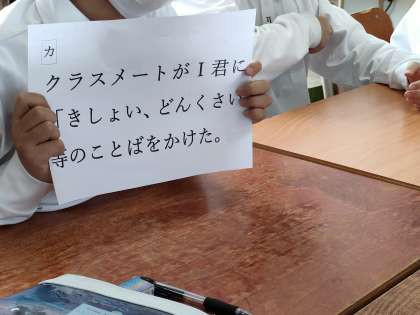 カ
クラスメートがI君に
「きしょい、どんくさい
等のことばをかけた。